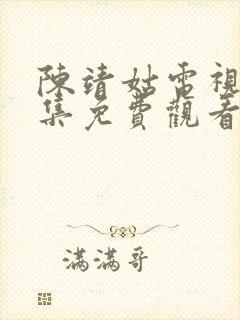 陳靖姑電視
集免費觀看
滿滿哥